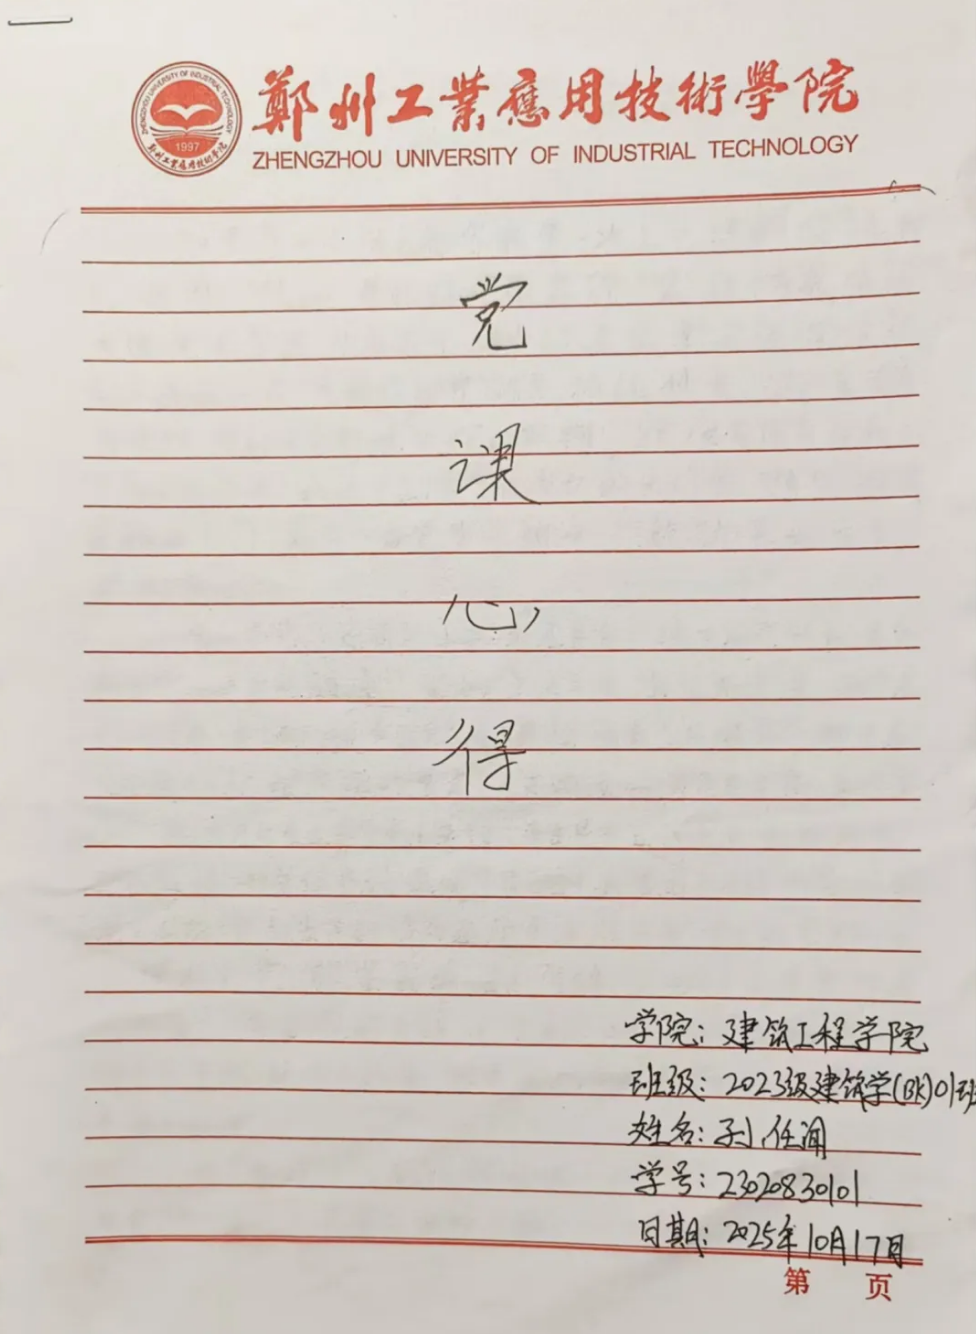 鄭州工業應用技術學院
ZHENGZHOU UNIVERSITY OF INDUSTRIAL TECHNOLOGY
ZHENGZHOU UNIVERSITY OF INDUSTRIAL TECHNOLOGY
1997
郑州工業應用技術學院
党
课
心
得
学院：建筑工程学院
班级：2023级建筑学(BK)01班
姓名：孙任润
学号：23020830101
日期：2025年10月17月
第 页